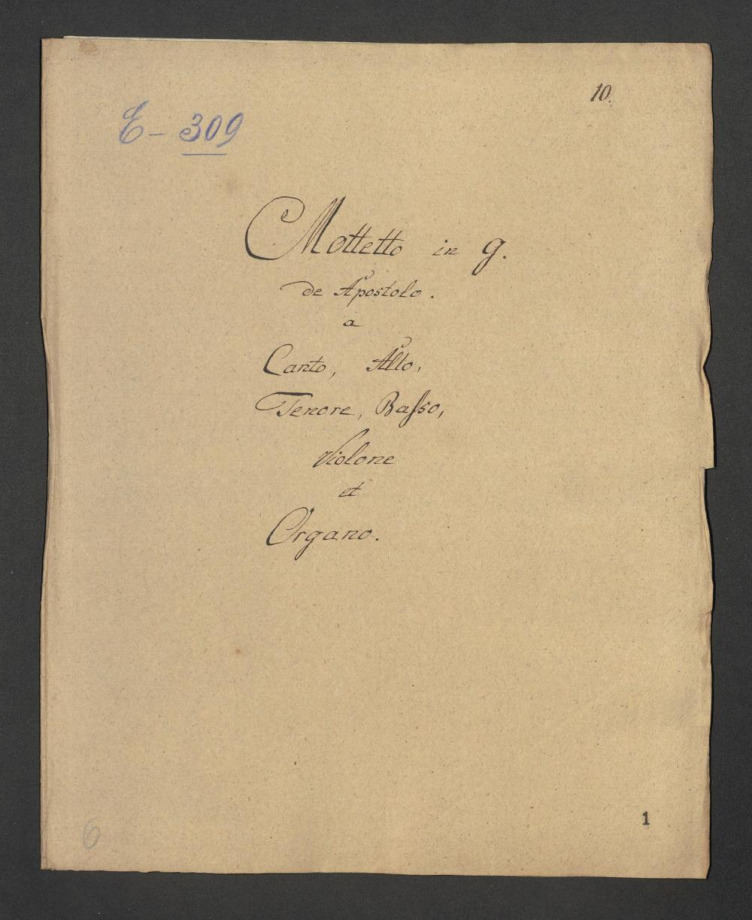 10.
E - 309
Mottetto in g.
de Apostolo.
a
Canto, Alto,
Tenore, Baſso,
Violone
et
Organo.
6
1